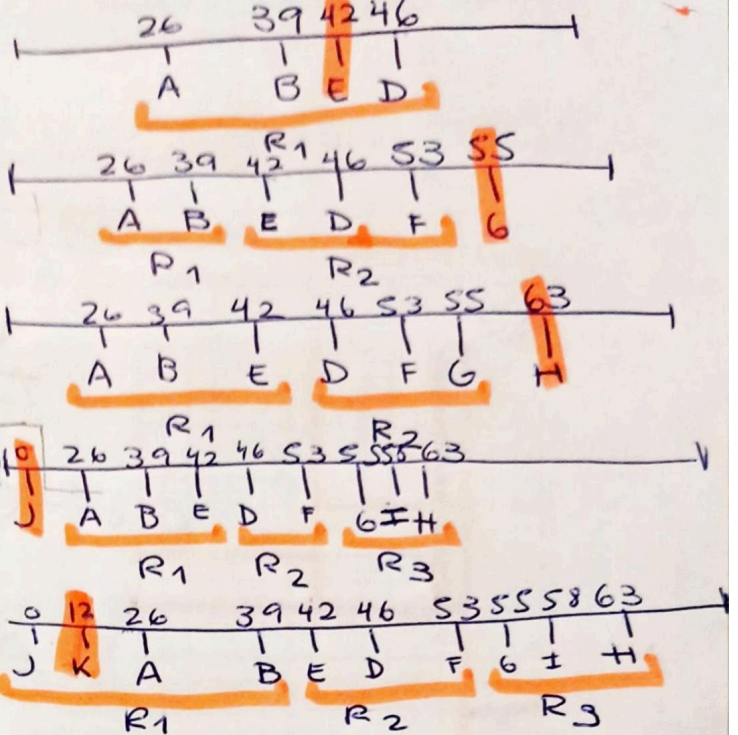 26 39 42 46
A B E D
R1
26 39 42 46 53 55
A B E D F G
R1 R2
26 39 42 46 53 55 63
A B E D F G H
R1 R2
0 26 39 42 46 53 55 63
J A B E D F G I H
R1 R2 R3
0 12 26 39 42 46 53 55 58 63
J K A B E D F G I H
R1 R2 R3